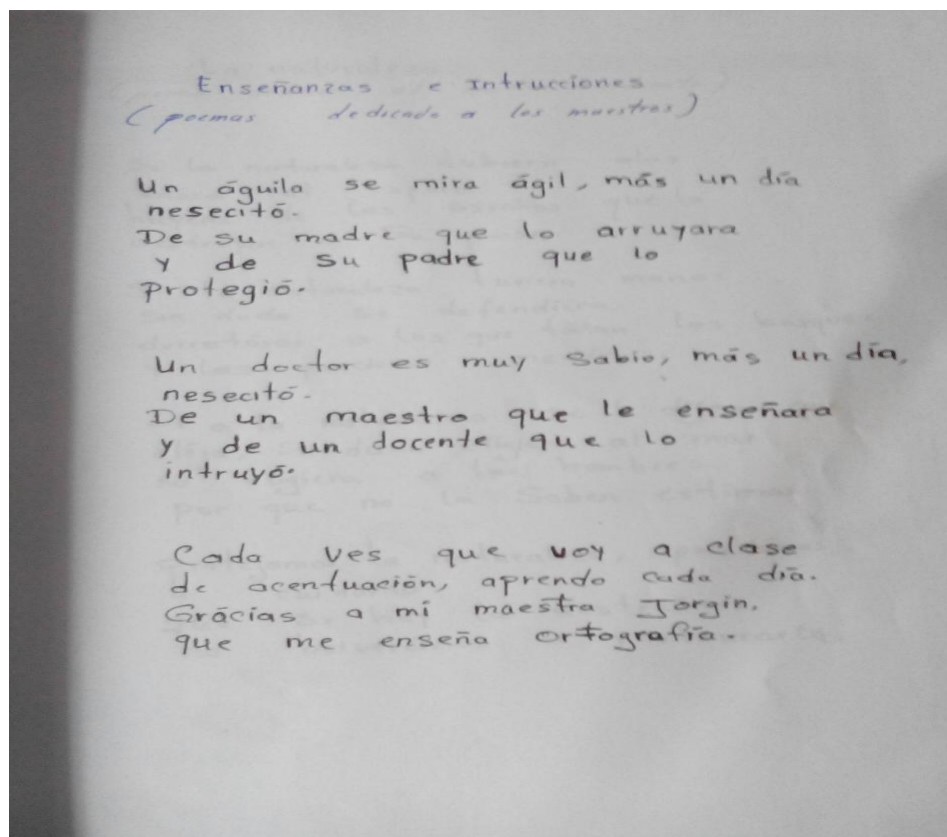 Enseñanzas e Intrucciones
(poemas dedicado a los maestros)
Un águila se mira ágil, más un día
nesecitó.
De su madre que lo arruyara
y de su padre que lo
Protegió.
Un doctor es muy sabio, más un día,
nesecitó.
De un maestro que le enseñara
y de un docente que lo
intruyó.
Cada ves que voy a clase
de acentuación, aprendo cada día.
Grácias a mi maestra Jorgin,
que me enseña ortografía.